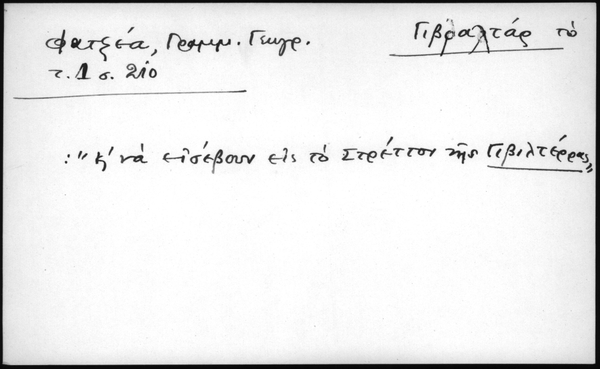 Φατζέα, Γραμμ. Γεωγρ.
τ. 1 σ. 210
Γιβραλτάρ τὸ
:"κ' νὰ εἰσέβουν εἰς τὸ Στρέττον τῆς Γιβιλτέρρας"